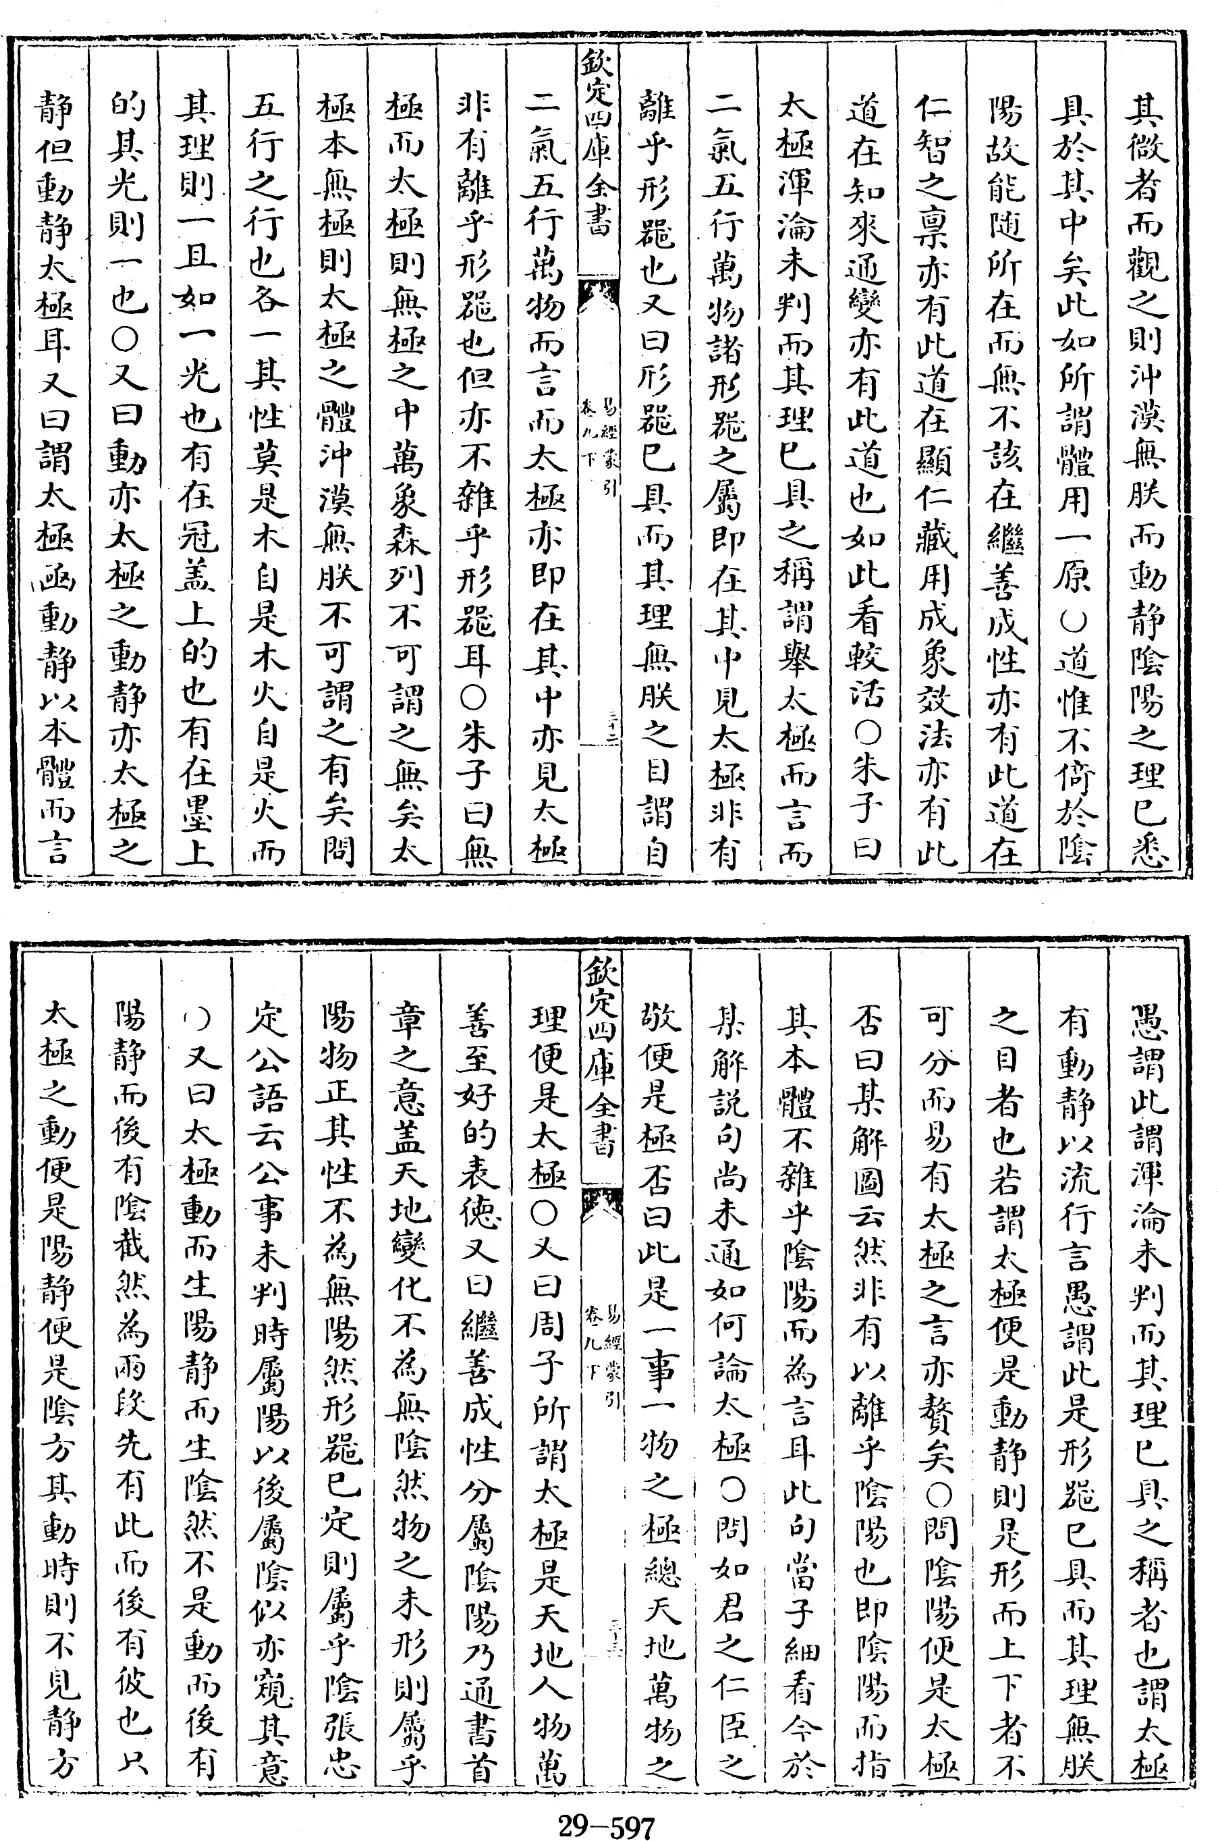 其微者而觀之則沖漠無朕而動静陰陽之理已悉
具於其中矣此如所謂體用一原○道惟不倚於陰
陽故能随所在而無不該在繼善成性亦有此道在
仁智之禀亦有此道在顯仁藏用成象效法亦有此
道在知來通變亦有此道也如此看較活○朱子曰
太極渾淪未判而其理已具之稱謂舉太極而言而
二氣五行萬物諸形器之屬即在其中見太極非有
離乎形器也又曰形器已具而其理無朕之目謂自
欽定四庫全書
易經蒙引
卷九下
三十二
二氣五行萬物而言而太極亦即在其中亦見太極
非有離乎形器也但亦不雜乎形器耳○朱子曰無
極而太極則無極之中萬象森列不可謂之無矣太
極本無極則太極之體沖漠無朕不可謂之有矣問
五行之行也各一其性莫是木自是木火自是火而
其理則一且如一光也有在冠盖上的也有在墨上
的其光則一也○又曰動亦太極之動静亦太極之
静但動静太極耳又曰謂太極函動静以本體而言
愚謂此謂渾淪未判而其理已具之稱者也謂太極
有動静以流行言愚謂此是形器已具而其理無朕
之目者也若謂太極便是動静則是形而上下者不
可分而易有太極之言亦贅矣○問陰陽便是太極
否曰某解圖云然非有以離乎陰陽也即陰陽而指
其本體不雜乎陰陽而為言耳此句當子細看今於
某解説句尚未通如何論太極○問如君之仁臣之
敬便是極否曰此是一事一物之極總天地萬物之
欽定四庫全書
易經蒙引
卷九下
三十三
理便是太極○又曰周子所謂太極是天地人物萬
善至好的表徳又曰繼善成性分屬陰陽乃通書首
章之意盖天地變化不為無陰然物之未形則屬乎
陽物正其性不為無陽然形器已定則屬乎陰張忠
定公語云公事未判時屬陽以後屬陰似亦窺其意
○又曰太極動而生陽静而生陰然不是動而後有
陽静而後有陰截然為兩段先有此而後有彼也只
太極之動便是陽静便是陰方其動時則不見静方
29-597